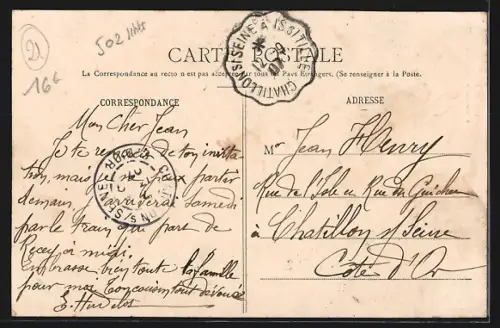 21
502 lihts
16€
CHATILLON S/SEINE A IS S/TILLE
12
07
CARTE POSTALE
La Correspondance au recto n'est pas acceptée par tous les Pays Etrangers. (Se renseigner à la Poste.
CORRESPONDANCE
ADRESSE
Mon Cher Jean
Je te remercie de ton invita-
tion, mais je ne peux partir
demain, j'arriverai samedi
par le train qui part de
Recey à midi.
Embrasse bien toute la famille
pour moi Ton cousin tout dévoué
E. Hudelot
Mr Jean Henry
Rue de l'Isle en Rue du Guichet
à Chatillon s/ Seine
Côte d'Or